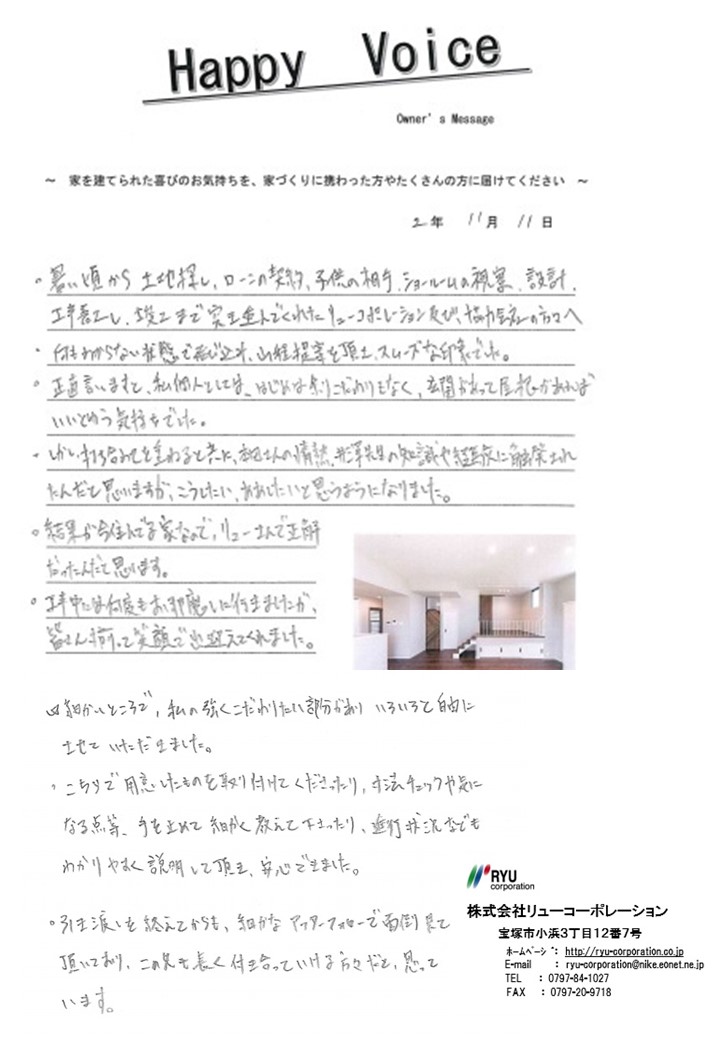 Happy Voice
Owner's Message
～ 家を建てられた喜びのお気持ちを、家づくりに携わった方やたくさんの方に届けてください ～
2年 11月 11日
・暑い頃から 土地探し、ローンの契約、子供の相手、ショールームの視察、設計、
工事着工し、竣工まで 実を並んでくれたリューコーポレーション及び、協力会社の方々へ
・何もわからない状態で飛び込み、 提案を頂き、スムーズな印象でした。
・正直言いますと、私個人としては、はじめは余りこだわりもなく、玄関があって屋根があれば
いいという気持ちでした。
・しかし、打ち合わせを重ねると共に、 さんの情熱、 先生の知識や経験に触発され
たんだと思いますが、こうしたい、ああしたいと思うようになりました。
・結果が今住んでる家なので、リューさんで正解
だったんだと思います。
・工事中には何度もお邪魔しに行きましたが、
皆さん揃って笑顔で出迎えてくれました。
・細かいところで、私の強くこだわりたい部分があり いろいろと自由に
させて いただきました。
・こちらで用意したものを取り付けてくださったり、寸法チェックや気に
なる点等、手を止めて 細かく教えて下さったり、進行状況なども
わかりやすく説明して頂き、安心できました。
・引き渡しを終えてからも、細かな アフターフォローで面倒見て
頂いており、この先も長く付き合っていける方々だと、思って
います。
RYU
corporation
株式会社リューコーポレーション
宝塚市小浜3丁目12番7号
ホームページ： http://ryu-corporation.co.jp
E-mail ： ryu-corporation@nike.eonet.ne.jp
TEL ： 0797-84-1027
FAX ： 0797-20-9718